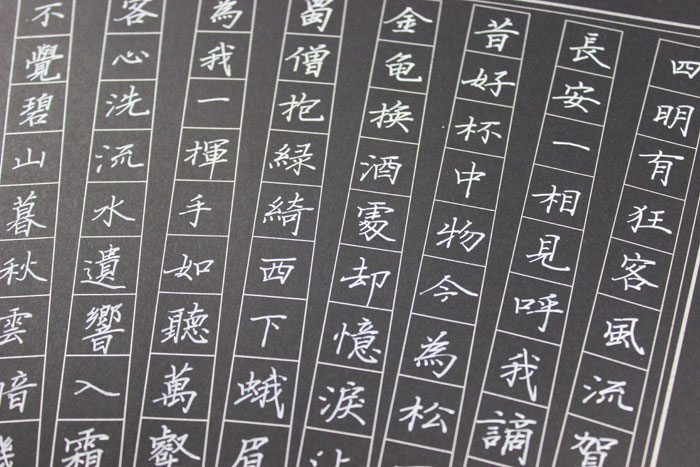 四明有狂客風流賀
長安一相見呼我謫
昔好杯中物今為松
金亀換酒處却憶淚沾
蜀僧抱緑綺西下蛾眉
為我一揮手如聽萬壑
客心洗流水遺響入霜
不覺碧山暮秋雲暗